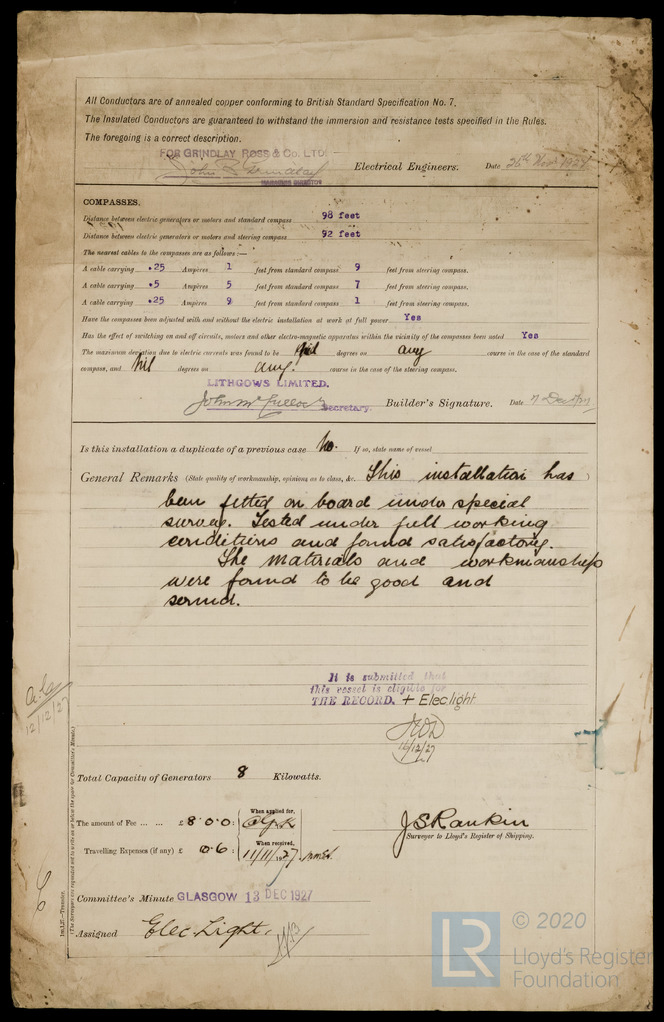 All Conductors are of annealed copper conforming to British Standard Specification No. 7.
The Insulated Conductors are guaranteed to withstand the immersion and resistance tests specified in the Rules.
The foregoing is a correct description.
FOR GRINDLAY ROSS & CO. LTD.
John Grindlay Electrical Engineers. Date 25th Nov 1927
MANAGING DIRECTOR
COMPASSES.
Distance between electric generators or motors and standard compass 98 feet
Distance between electric generators or motors and steering compass 92 feet
The nearest cables to the compasses are as follows:—
A cable carrying .25 Ampères 1 feet from standard compass 9 feet from steering compass.
A cable carrying .5 Ampères 5 feet from standard compass 7 feet from steering compass.
A cable carrying .25 Ampères 9 feet from standard compass 1 feet from steering compass.
Have the compasses been adjusted with and without the electric installation at work at full power Yes
Has the effect of switching on and off circuits, motors and other electro-magnetic apparatus within the vicinity of the compasses been noted Yes
The maximum deviation due to electric currents was found to be Nil degrees on any course in the case of the standard
compass, and Nil degrees on any. course in the case of the steering compass.
LITHGOWS LIMITED.
John McCulloch Secretary. Builder's Signature. Date
Is this installation a duplicate of a previous case No. If so, state name of vessel
General Remarks (State quality of workmanship, opinions as to class, &c. This installation has)
been fitted on board under special
survey. Tested under full working
conditions and found satisfactory.
The materials and workmanship
were found to be good and
sound.
It is submitted that
this vessel is eligible for
THE RECORD. + Elec light
12/12/27
16/12/27
Total Capacity of Generators 8 Kilowatts.
The amount of Fee ... ... £ 8:0:0: When applied for,
Travelling Expenses (if any) £ 10.6 When received, 11/11/27
J S Rankin
Surveyor to Lloyd's Register of Shipping.
Committee's Minute GLASGOW 13 DEC 1927
Assigned Elec. Light.
1m.1,27.—Transfer.
(The Surveyors are requested not to write on or below the space for Committee's Minute.)
LR
© 2020
Lloyd's Register
Foundation